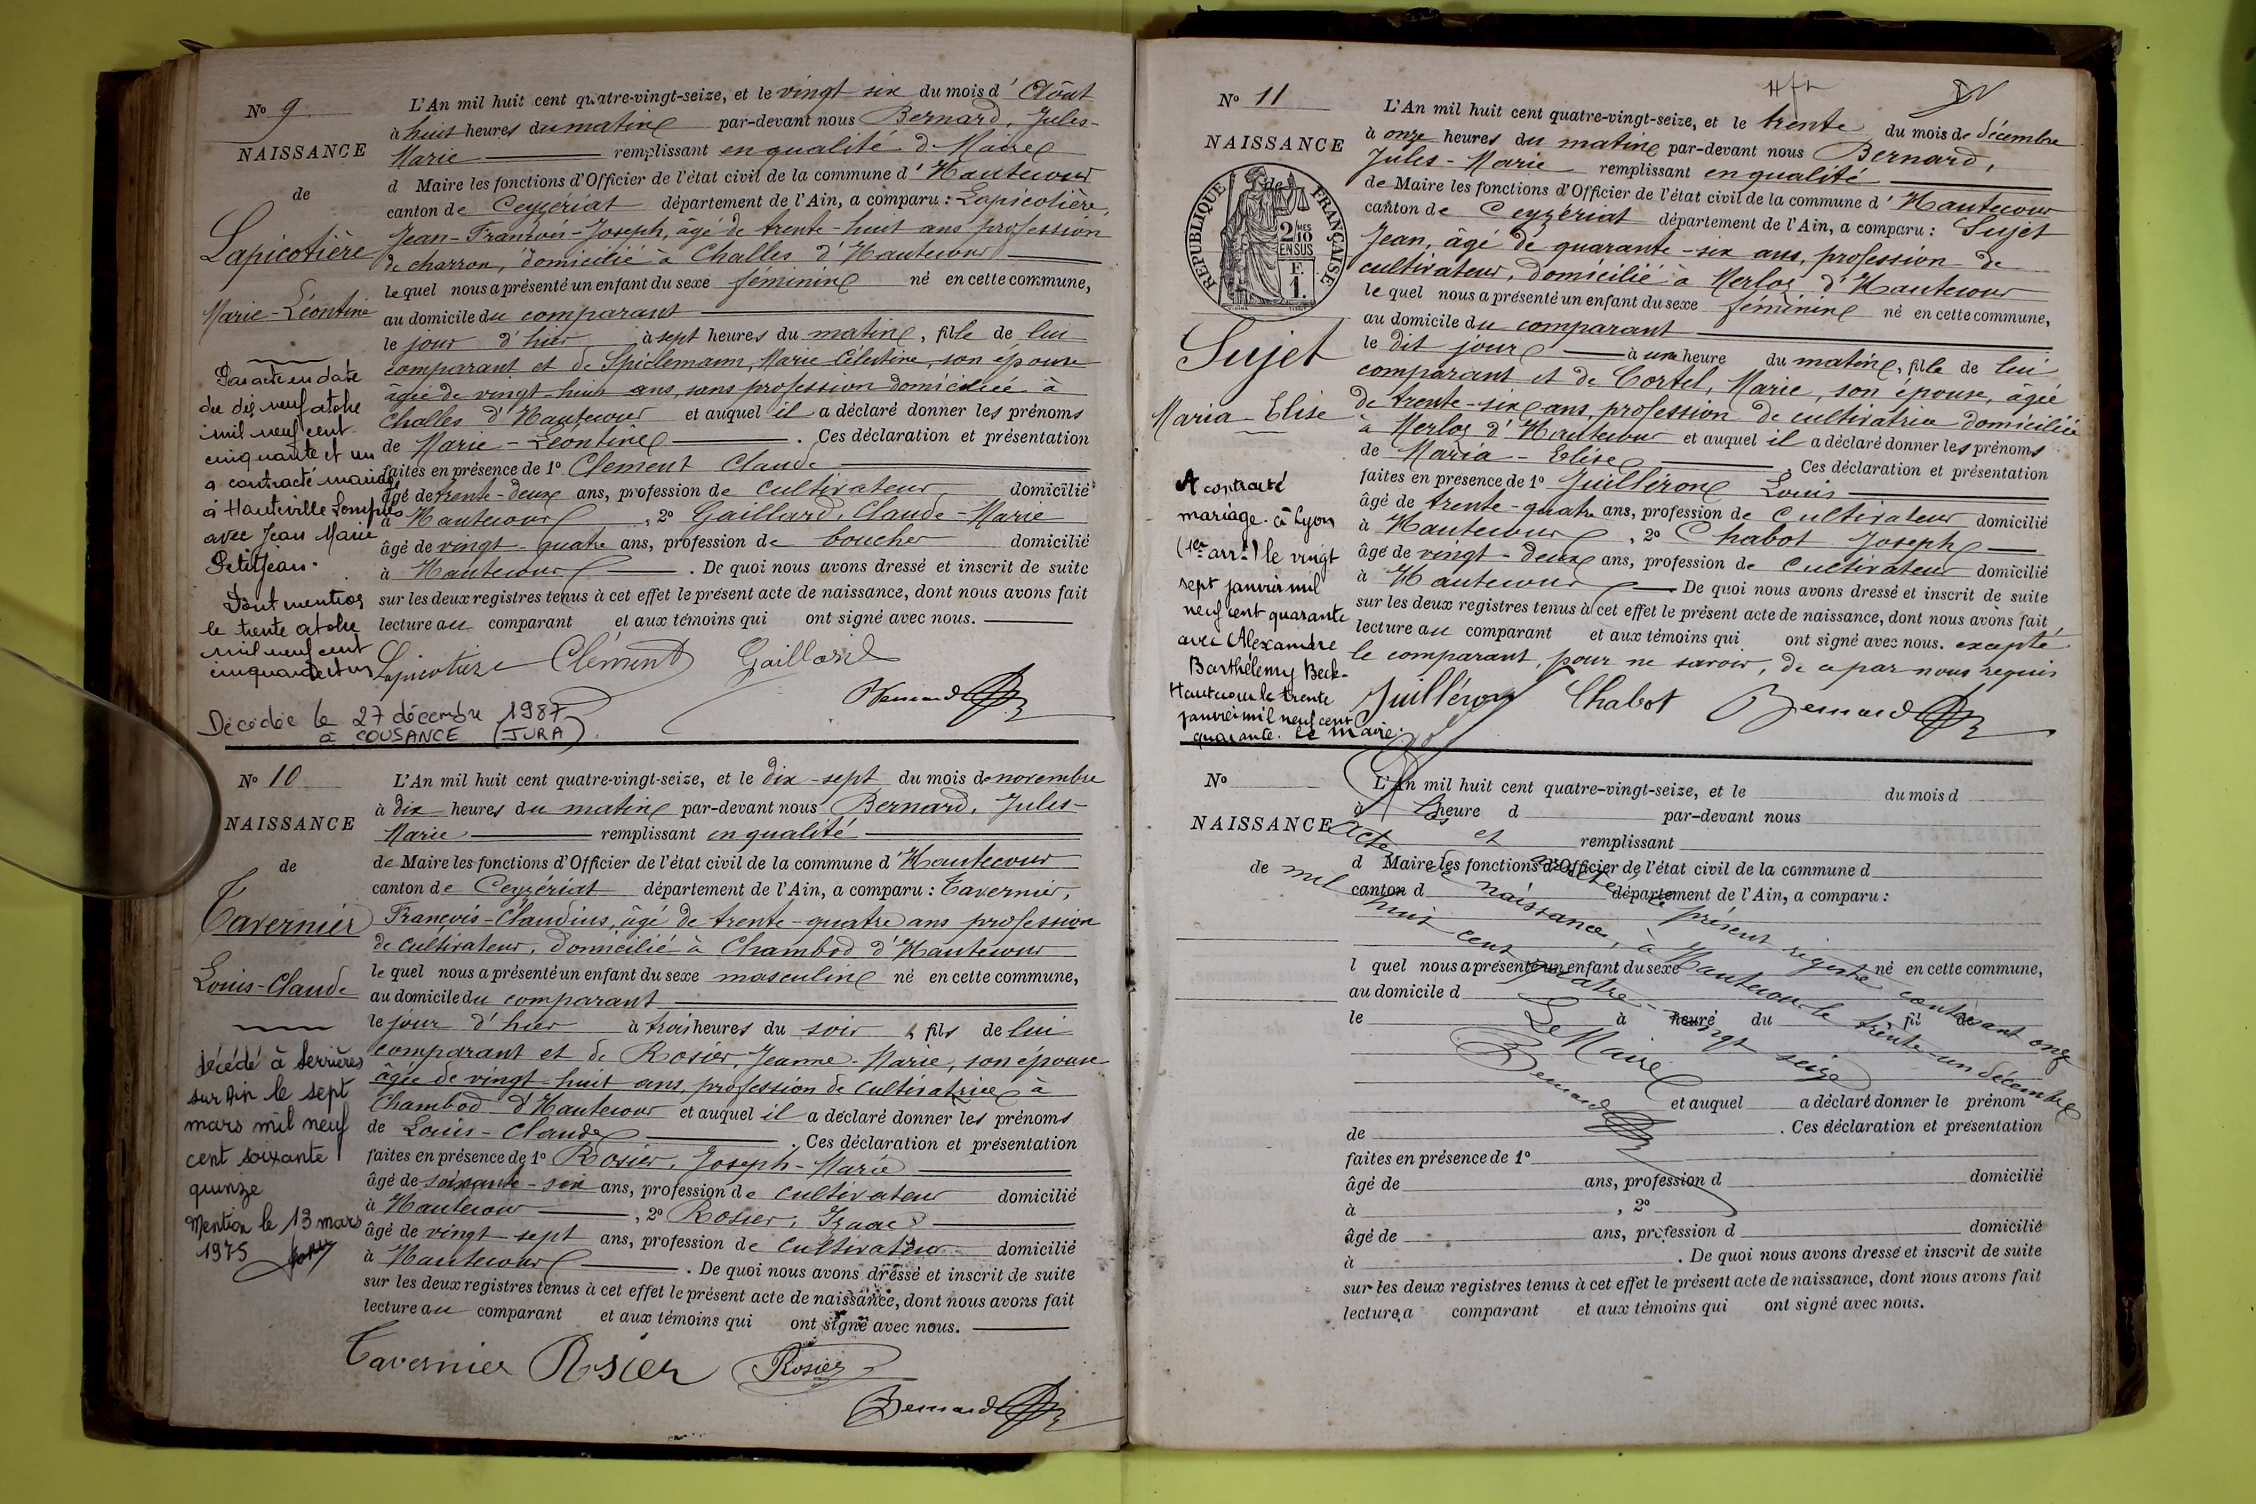 No 9
NAISSANCE
de
Lapicotière
Marie-Léontine
Par acte en date
du dix neuf octobre
mil neuf cent
cinquante et un
a contracté mariage
à Hauteville Lompnes
avec Jean Marie
Petitjean.
Dont mention
le trente octobre
mil neuf cent
cinquante et un
Décédée le 27 décembre 1987
à COUSANCE (JURA).
L'An mil huit cent quatre-vingt-seize, et le vingt six du mois d'Août
à huit heures du matin par-devant nous Bernard, Jules-
Marie remplissant en qualité de Maire
d Maire les fonctions d'Officier de l'état civil de la commune d'Hautecour
canton de Ceyzériat département de l'Ain, a comparu : Lapicotière,
Jean-François-Joseph, âgé de trente-huit ans profession
de charron, domicilié à Challes d'Hautecour
lequel nous a présenté un enfant du sexe féminin né en cette commune,
au domicile du comparant
le jour d'hier à sept heures du matin, fille de lui
comparant et de Spiclemann, Marie Célestine, son épouse
âgée de vingt-huit ans, sans profession domiciliée à
Challes d'Hautecour et auquel il a déclaré donner les prénoms
de Marie-Léontine. Ces déclaration et présentation
faites en présence de 1o Clément Claude
âgé de trente-deux ans, profession de cultivateur domicilié
à Hautecour, 2o Gaillard, Claude-Marie
âgé de vingt-quatre ans, profession de boucher domicilié
à Hautecour. De quoi nous avons dressé et inscrit de suite
sur les deux registres tenus à cet effet le présent acte de naissance, dont nous avons fait
lecture au comparant et aux témoins qui ont signé avec nous.
Lapicotière Clément Gaillard
Bernard
No 10
NAISSANCE
de
Tavernier
Louis-Claude
décédé à Serrières
sur Ain le sept
mars mil neuf
cent soixante
quinze
Mention le 13 mars
1975
L'An mil huit cent quatre-vingt-seize, et le dix-sept du mois de novembre
à dix heures du matin par-devant nous Bernard, Jules-
Marie remplissant en qualité
de Maire les fonctions d'Officier de l'état civil de la commune d'Hautecour
canton de Ceyzériat département de l'Ain, a comparu : Tavernier,
François-Claudius, âgé de trente-quatre ans profession
de cultivateur, domicilié à Chambod d'Hautecour
lequel nous a présenté un enfant du sexe masculin né en cette commune,
au domicile du comparant
le jour d'hier à trois heures du soir, fils de lui
comparant et de Rosier, Jeanne-Marie, son épouse
âgée de vingt-huit ans, profession de cultivatrice à
Chambod d'Hautecour et auquel il a déclaré donner les prénoms
de Louis-Claude. Ces déclaration et présentation
faites en présence de 1o Rosier, Joseph-Marie
âgé de soixante-six ans, profession de cultivateur domicilié
à Hautecour, 2o Rosier, Izaac
âgé de vingt sept ans, profession de cultivateur domicilié
à Hautecour. De quoi nous avons dressé et inscrit de suite
sur les deux registres tenus à cet effet le présent acte de naissance, dont nous avons fait
lecture au comparant et aux témoins qui ont signé avec nous.
Tavernier Rosier Rosier
Bernard
No 11
NAISSANCE
de
REPUBLIQUE FRANÇAISE
2 MES
10
EN SUS
F.
1.
Sujet
Maria-Elise
A contracté
mariage à Lyon
(1er arrt) le vingt
sept janvier mil
neuf cent quarante
avec Alexandre
Barthélemy Beck-
Hautecour le trente
janvier mil neuf cent
quarante. Le Maire.
L'An mil huit cent quatre-vingt-seize, et le trente du mois de décembre
à onze heures du matin par-devant nous Bernard,
Jules-Marie remplissant en qualité
de Maire les fonctions d'Officier de l'état civil de la commune d'Hautecour
canton de Ceyzériat département de l'Ain, a comparu : Sujet
Jean, âgé de quarante-six ans, profession de
cultivateur, domicilié à Merloz d'Hautecour
lequel nous a présenté un enfant du sexe féminin né en cette commune,
au domicile du comparant
le dit jour à une heure du matin, fille de lui
comparant et de Cortel, Marie, son épouse, âgée
de trente-six ans, profession de cultivatrice domiciliée
à Merloz d'Hautecour et auquel il a déclaré donner les prénoms
de Maria-Elise. Ces déclaration et présentation
faites en présence de 1o Juilléron Louis
âgé de trente-quatre ans, profession de cultivateur domicilié
à Hautecour, 2o Chabot Joseph
âgé de vingt-deux ans, profession de cultivateur domicilié
à Hautecour De quoi nous avons dressé et inscrit de suite
sur les deux registres tenus à cet effet le présent acte de naissance, dont nous avons fait
lecture au comparant et aux témoins qui ont signé avec nous. excepté
le comparant, pour ne savoir, de ce par nous requis
Juilléron Chabot Bernard
No
NAISSANCE
de
L'An mil huit cent quatre-vingt-seize, et le du mois d
à heure d par-devant nous
remplissant
d Maire les fonctions d'Officier de l'état civil de la commune d
canton d département de l'Ain, a comparu :
l quel nous a présenté un enfant du sexe né en cette commune,
au domicile d
le à heure du fil de
et auquel a déclaré donner le prénom
de . Ces déclaration et présentation
faites en présence de 1o
âgé de ans, profession d domicilié
à , 2o
âgé de ans, profession d domicilié
à . De quoi nous avons dressé et inscrit de suite
sur les deux registres tenus à cet effet le présent acte de naissance, dont nous avons fait
lecture a comparant et aux témoins qui ont signé avec nous.
et arrêté le présent registre contenant onze
actes de naissance, à Hautecour le trente-un décembre
mil huit cent quatre-vingt seize
Le Maire
Bernard